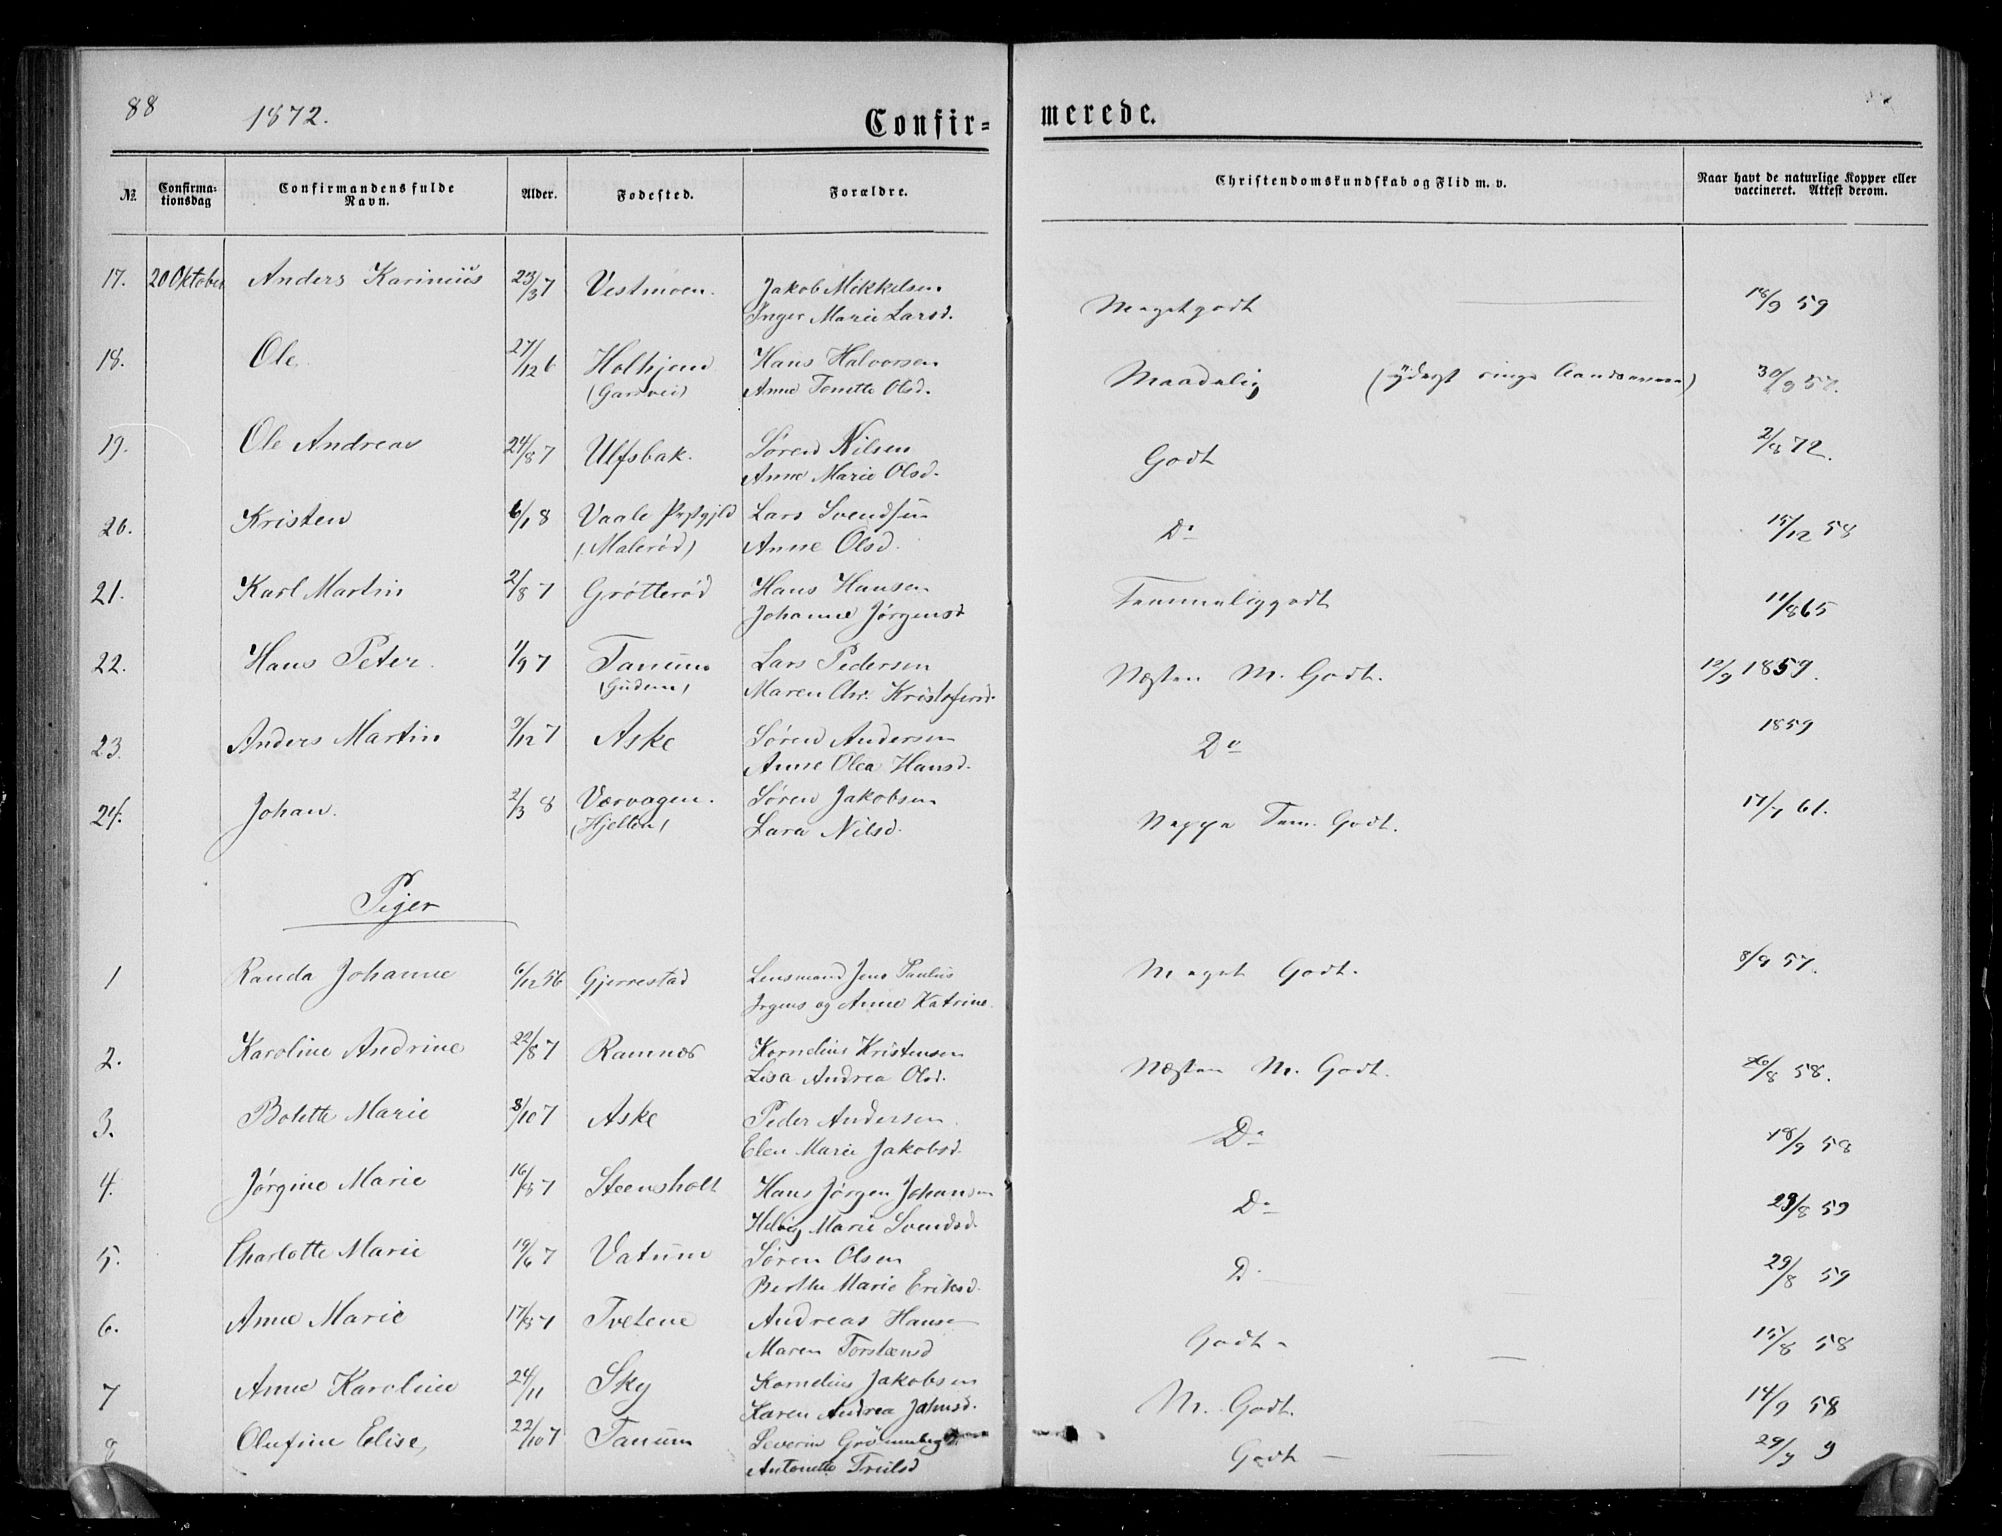 88
1872.
Confir=
merede.
№
Confirma-
tionsdag
Confirmandens fulde
Navn.
Alder.
Fødested.
Forældre.
Christendomskundskab og Flid m. v.
Naar havt de naturlige Kopper eller
vaccineret. Attest derom.
17. 20 Oktober Anders Karinius 23/3 7 Vestmoen. Jakob Mikkelsen
Inger Marie Larsd.
Megetgodt 18/9 59
18. Ole 27/12 6 Holhjem Hans Halvorsen
(Garvei) Anne Tonette Olsd.
Maadelig (yderst ringe Aandsevner) 30/9 57.
19. Ole Andreas 24/8 7 Ulfsbak. Søren Nilsen
Anne Marie Olsd.
Godt 2/8 72.
20. Kristen 6/1 8 Vaale Prstgjld Lars Svendsen
(Malerød) Anne Olsd.
Do 15/12 58
21. Karl Martin 2/8 7 Grøtterød Hans Hansen
Johanne Jørgensd
Temmeliggodt 11/8 65
22. Hans Peter. 1/9 7 Tanum Lars Pedersen
(Gudem) Maren Chr. Kristofersd.
Næsten M. Godt. 12/9 1859.
23. Anders Martin 9/12 7 Aske Søren Andersen
Anne Olea Hansd.
Do 1859
24. Johan. 2/3 8 Værvagen. Søren Jakobsen
(Hjelten) Lara Nilsd.
Neppe Tem. Godt. 17/7 61.
Piger
1 Randa Johanne 6/12 56 Gjerrestad Lensmand Jens Paulus
Irgens og Anne Katrine.
Meget Godt. 8/9 57.
2. Karoline Andrine 22/8 7 Ramnes Kornelius Kristensen
Lisa Andrea Olsd.
Næsten M. Godt. /8 58.
3. Bolette Marie 8/10 7 Aske Peder Andersen
Elen Marie Jakobsd.
Do 18/9 58
4. Jørgine Marie 16/8 7 Steensholt Hans Jørgen Johansen
Helvig Marie Svendsd.
Do 23/8 59
5. Charlotte Marie 19/6 7 Vatum Søren Olsen
Berthe Marie Eriksd.
D. 29/8 59
6. Anne Marie 17/8 7 Tvetene Andreas Hansen
Maren Torstensd
Godt 15/8 58
7 Anne Karoline 24/11 Sky Kornelius Jakobsen
Karen Andrea
M. Godt. 14/9 58
8 Olufine Elise 22/10 7 Tanum Severin
Antonette Trulsd
Godt 29/9 9